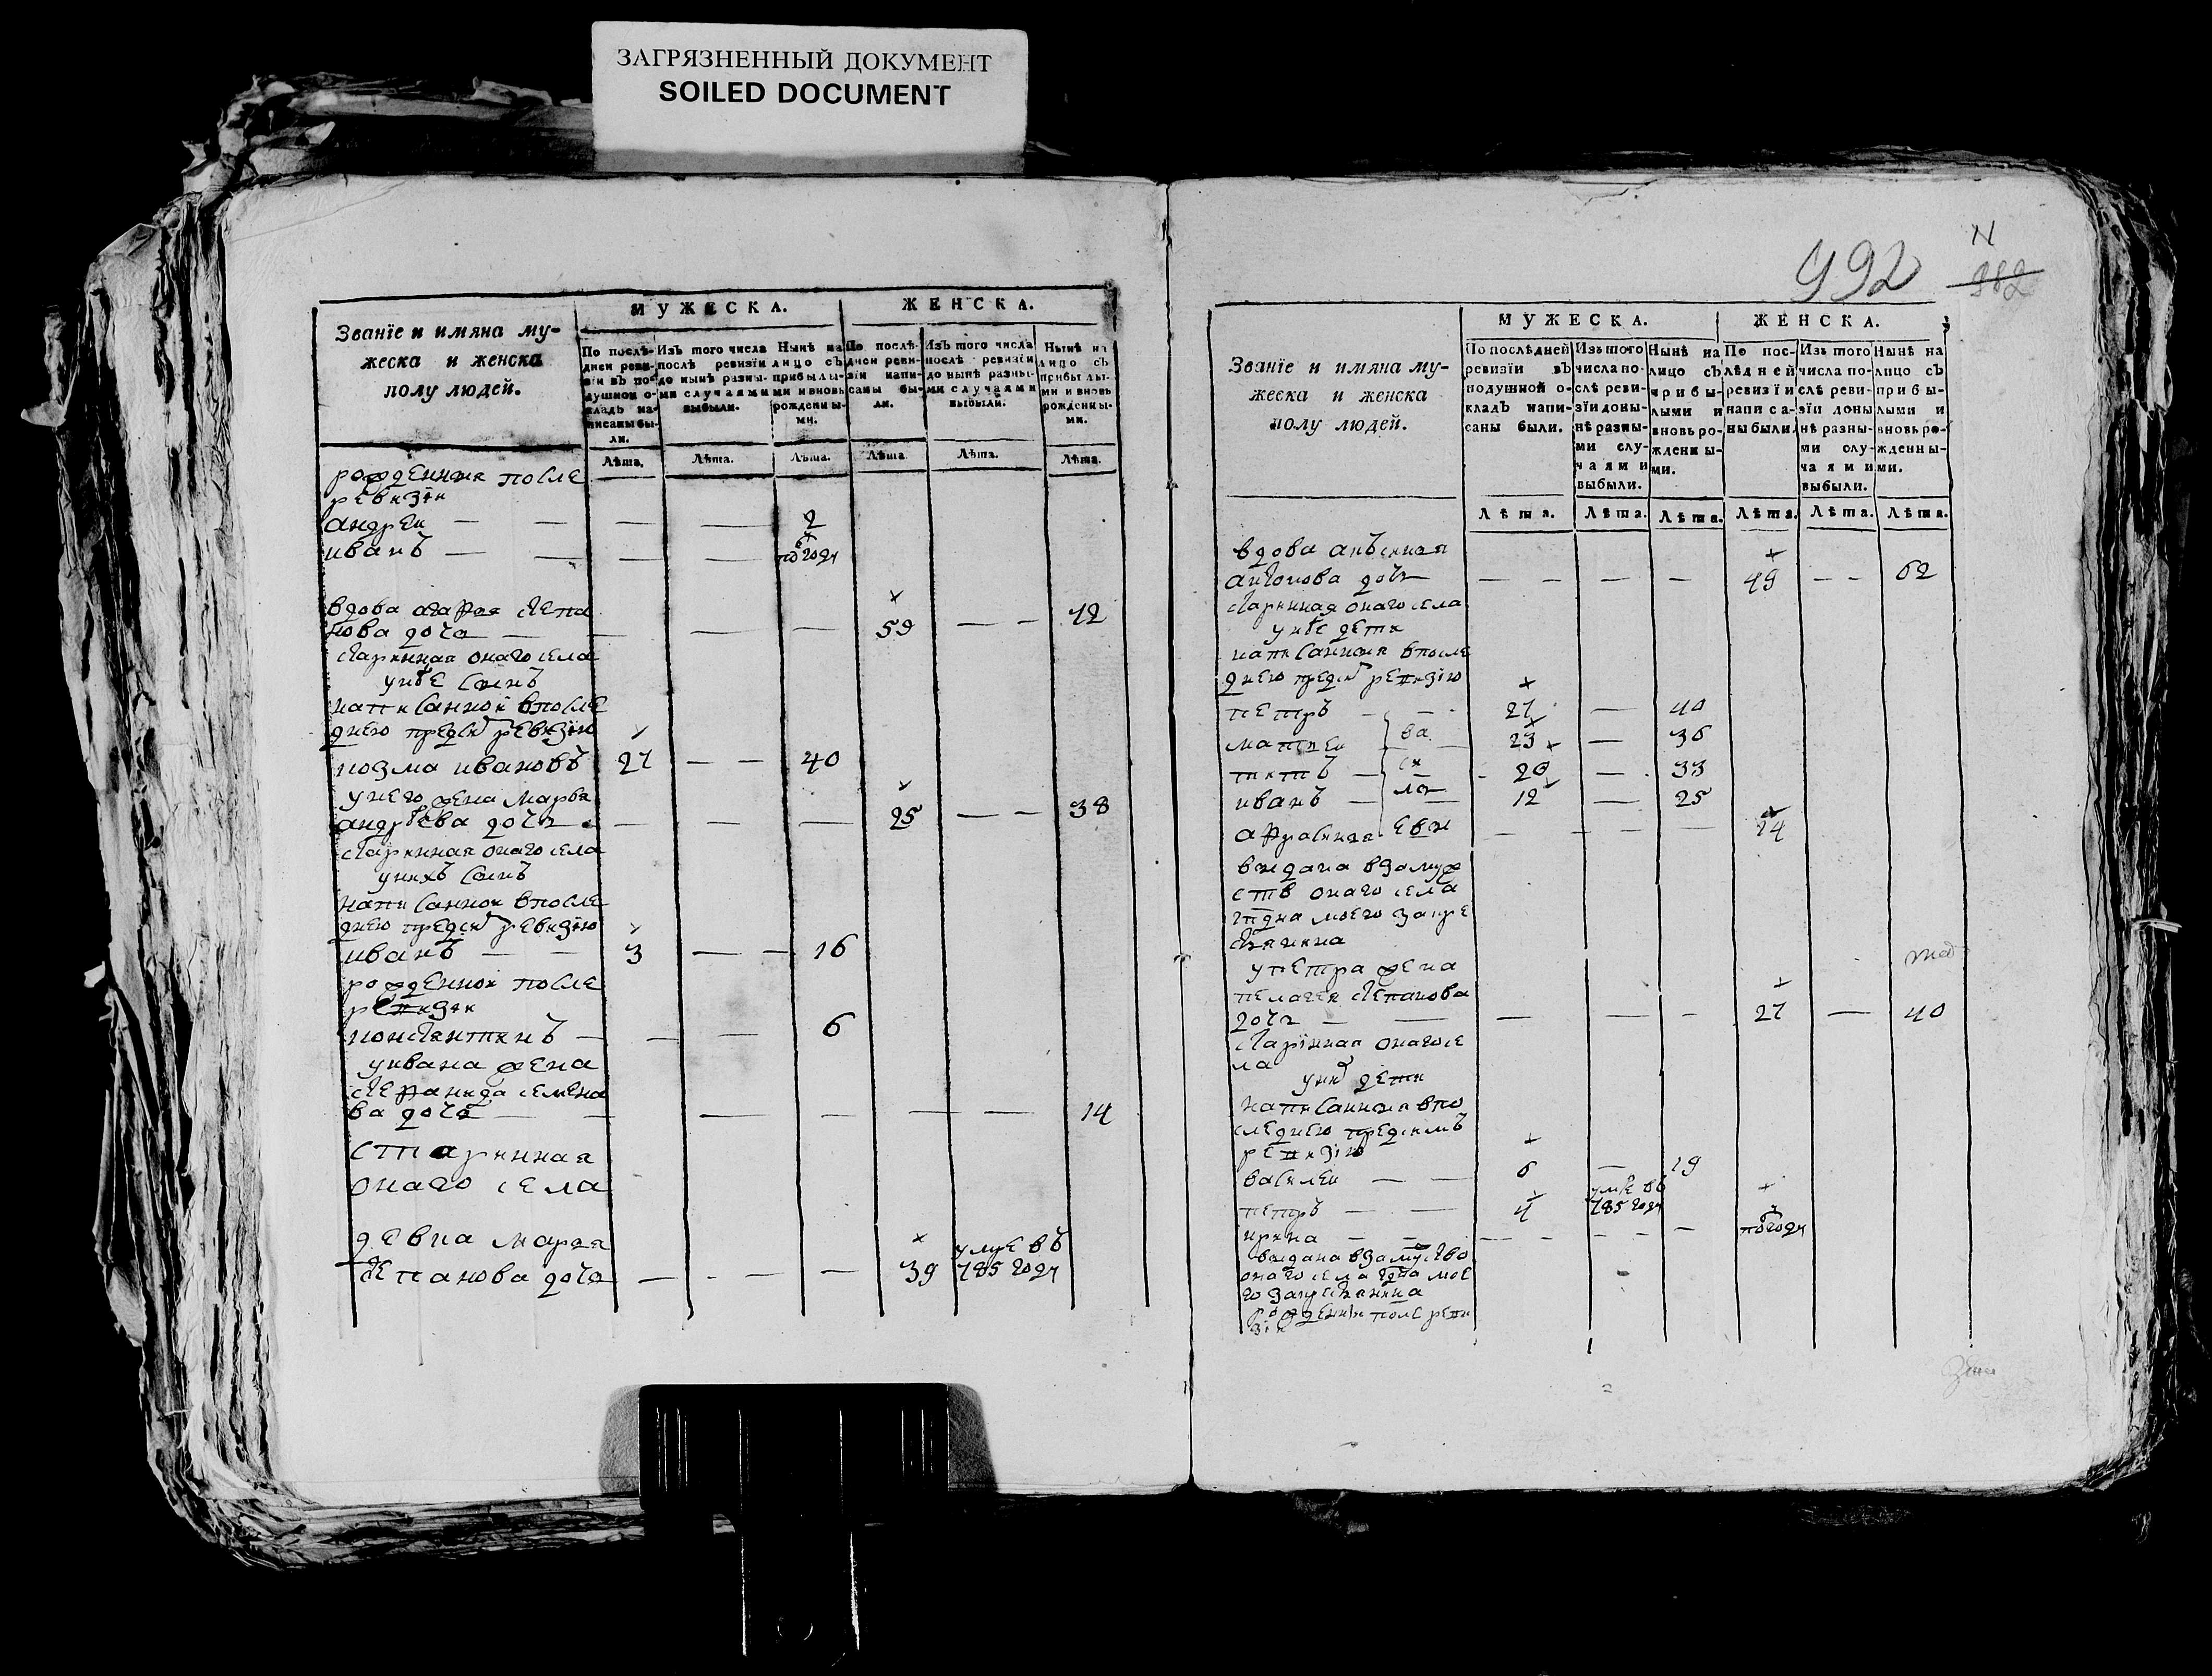 ЗАГРЯЗНЕННЫЙ ДОКУМЕНТ
SOILED DOCUMENT
Званїе и имяна му-
жеска и женска
полу людей.
МУЖЕСКА.
ЖЕНСКА.
По послѣ-
дней реви-
зїи въ по-
душной о-
кладъ на-
писаны бы-
ли.
Изъ того числа
послѣ ревизїи
до нынѣ разны-
ми случаями
выбыли.
Нынѣ на
лицо съ
прибылы-
ми и вновь
рожденны-
ми.
По послѣ-
дней реви-
зїи напи-
саны бы-
ли.
Изъ того числа
послѣ ревизїи
до нынѣ разны-
ми случаями
выбыли.
Нынѣ на
лицо съ
прибылы-
ми и вновь
рожденны-
ми.
Лѣта. Лѣта. Лѣта. Лѣта. Лѣта. Лѣта.
рожденныя после
ревизїи
андреи — — — — 2
иванъ — — — — погоду
вдова агафя степа
нова дочь — — — — 59 — — 72
старинная онаго села
унее сынъ
написанной впосле
днею пред сей ревизїю
козма ивановъ 27 — — 40
унего жена марѳа
андреева дочь — — — 25 — — 38
старинная онаго села
унихъ сынъ
написанной впосле
днею пред сей ревизїю
иванъ — — 3 — — 16
рожденной после
ревизїи
константинъ — — — 6
уивана жена
стефанида семено
ва дочь — — — — — — 14
старинная
онаго села
девка марья
степанова дочь — - — — 39 умре въ
785 году
992
N
982
Званїе и имяна му-
жеска и женска
полу людей.
МУЖЕСКА.
ЖЕНСКА.
По послѣдней
ревизїи въ
подушной о-
кладъ напи-
саны были.
Изъ того
числа по-
слѣ реви-
зїи доны-
нѣ разны-
ми слу-
чаями
выбыли.
Нынѣ на
лицо съ
прибы-
лыми и
вновь ро-
жденны-
ми.
По пос-
лѣдней
ревизїи
написа-
ны были.
Изъ того
числа по-
слѣ реви-
зїи доны
нѣ разны-
ми слу-
чаями
выбыли.
Нынѣ на
лицо съ
прибы-
лыми и
вновь ро-
жденны-
ми.
Лѣта. Лѣта. Лѣта. Лѣта. Лѣта. Лѣта.
вдова
антонова дочь — — — — 49 — — 62
старинная онаго села
унее дети
написанныя впосле
днею пред сей ревизїю
петръ 27 — 40
матвеи ва 23 — 36
титъ си 20 — 33
иванъ ль 12 — 25
афросинья евы — — — — 14
выдана взамуж
ств онаго села
гпдна моего за кре
стьянина
упетра жена
пелагея степанова
дочь — — — — — 27 — 40
старинная онаго се
ла
уних дети
написанныя впо
следнею предсимъ
ревизїю
василеи — — 6 — 19
петръ — — 4 умре въ
785 году
ирина — — — — — — погоду
выдана взамуство
онаго села гдна мое
го за крестьянина
рожденны посе реви
зїи